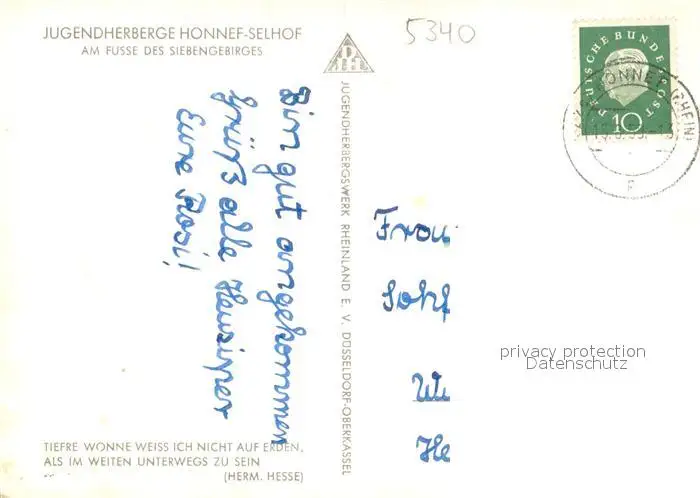 JUGENDHERBERGE HONNEF-SELHOF
AM FUSSE DES SIEBENGEBIRGES
5340
DEUTSCHE BUNDESPOST
10
HONNEF (RHEIN)
F
Bin gut angekommen
Grüß alle
Eure Rosi!
JUGENDHERBERGSWERK RHEINLAND E. V. DÜSSELDORF-OBERKASSEL
Frau
privacy protection
Datenschutz
TIEFRE WONNE WEISS ICH NICHT AUF ERDEN,
ALS IM WEITEN UNTERWEGS ZU SEIN
(HERM. HESSE)